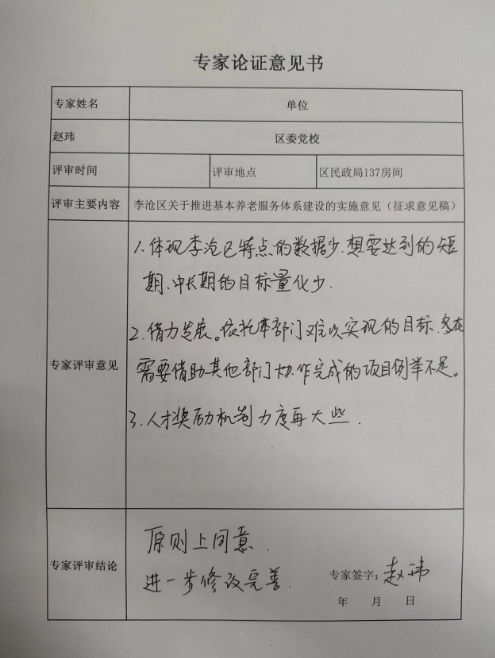 专家论证意见书
专家姓名 单位
赵玮 区委党校
评审时间 评审地点 区民政局137房间
评审主要内容 李沧区关于推进基本养老服务体系建设的实施意见（征求意见稿）
专家评审意见
1.体现李沧区特点的数据少.想要达到的短
期、中长期的目标量化少.
2.借力发展。依托本部门难以实现的目标.
需要借助其他部门协作完成的项目例举不足。
3.人才奖励机制力度再大些.
专家评审结论
原则上同意.
进一步修改完善.
专家签字：赵玮
年 月 日